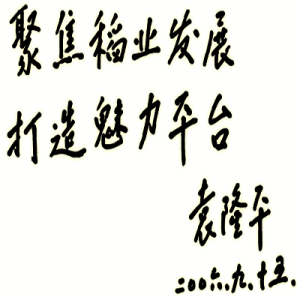 聚焦稻业发展
打造魅力平台
袁隆平
二00六.九.十五.